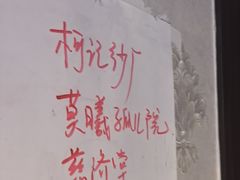 柯记纱厂
莫曦孤儿院
慈济堂